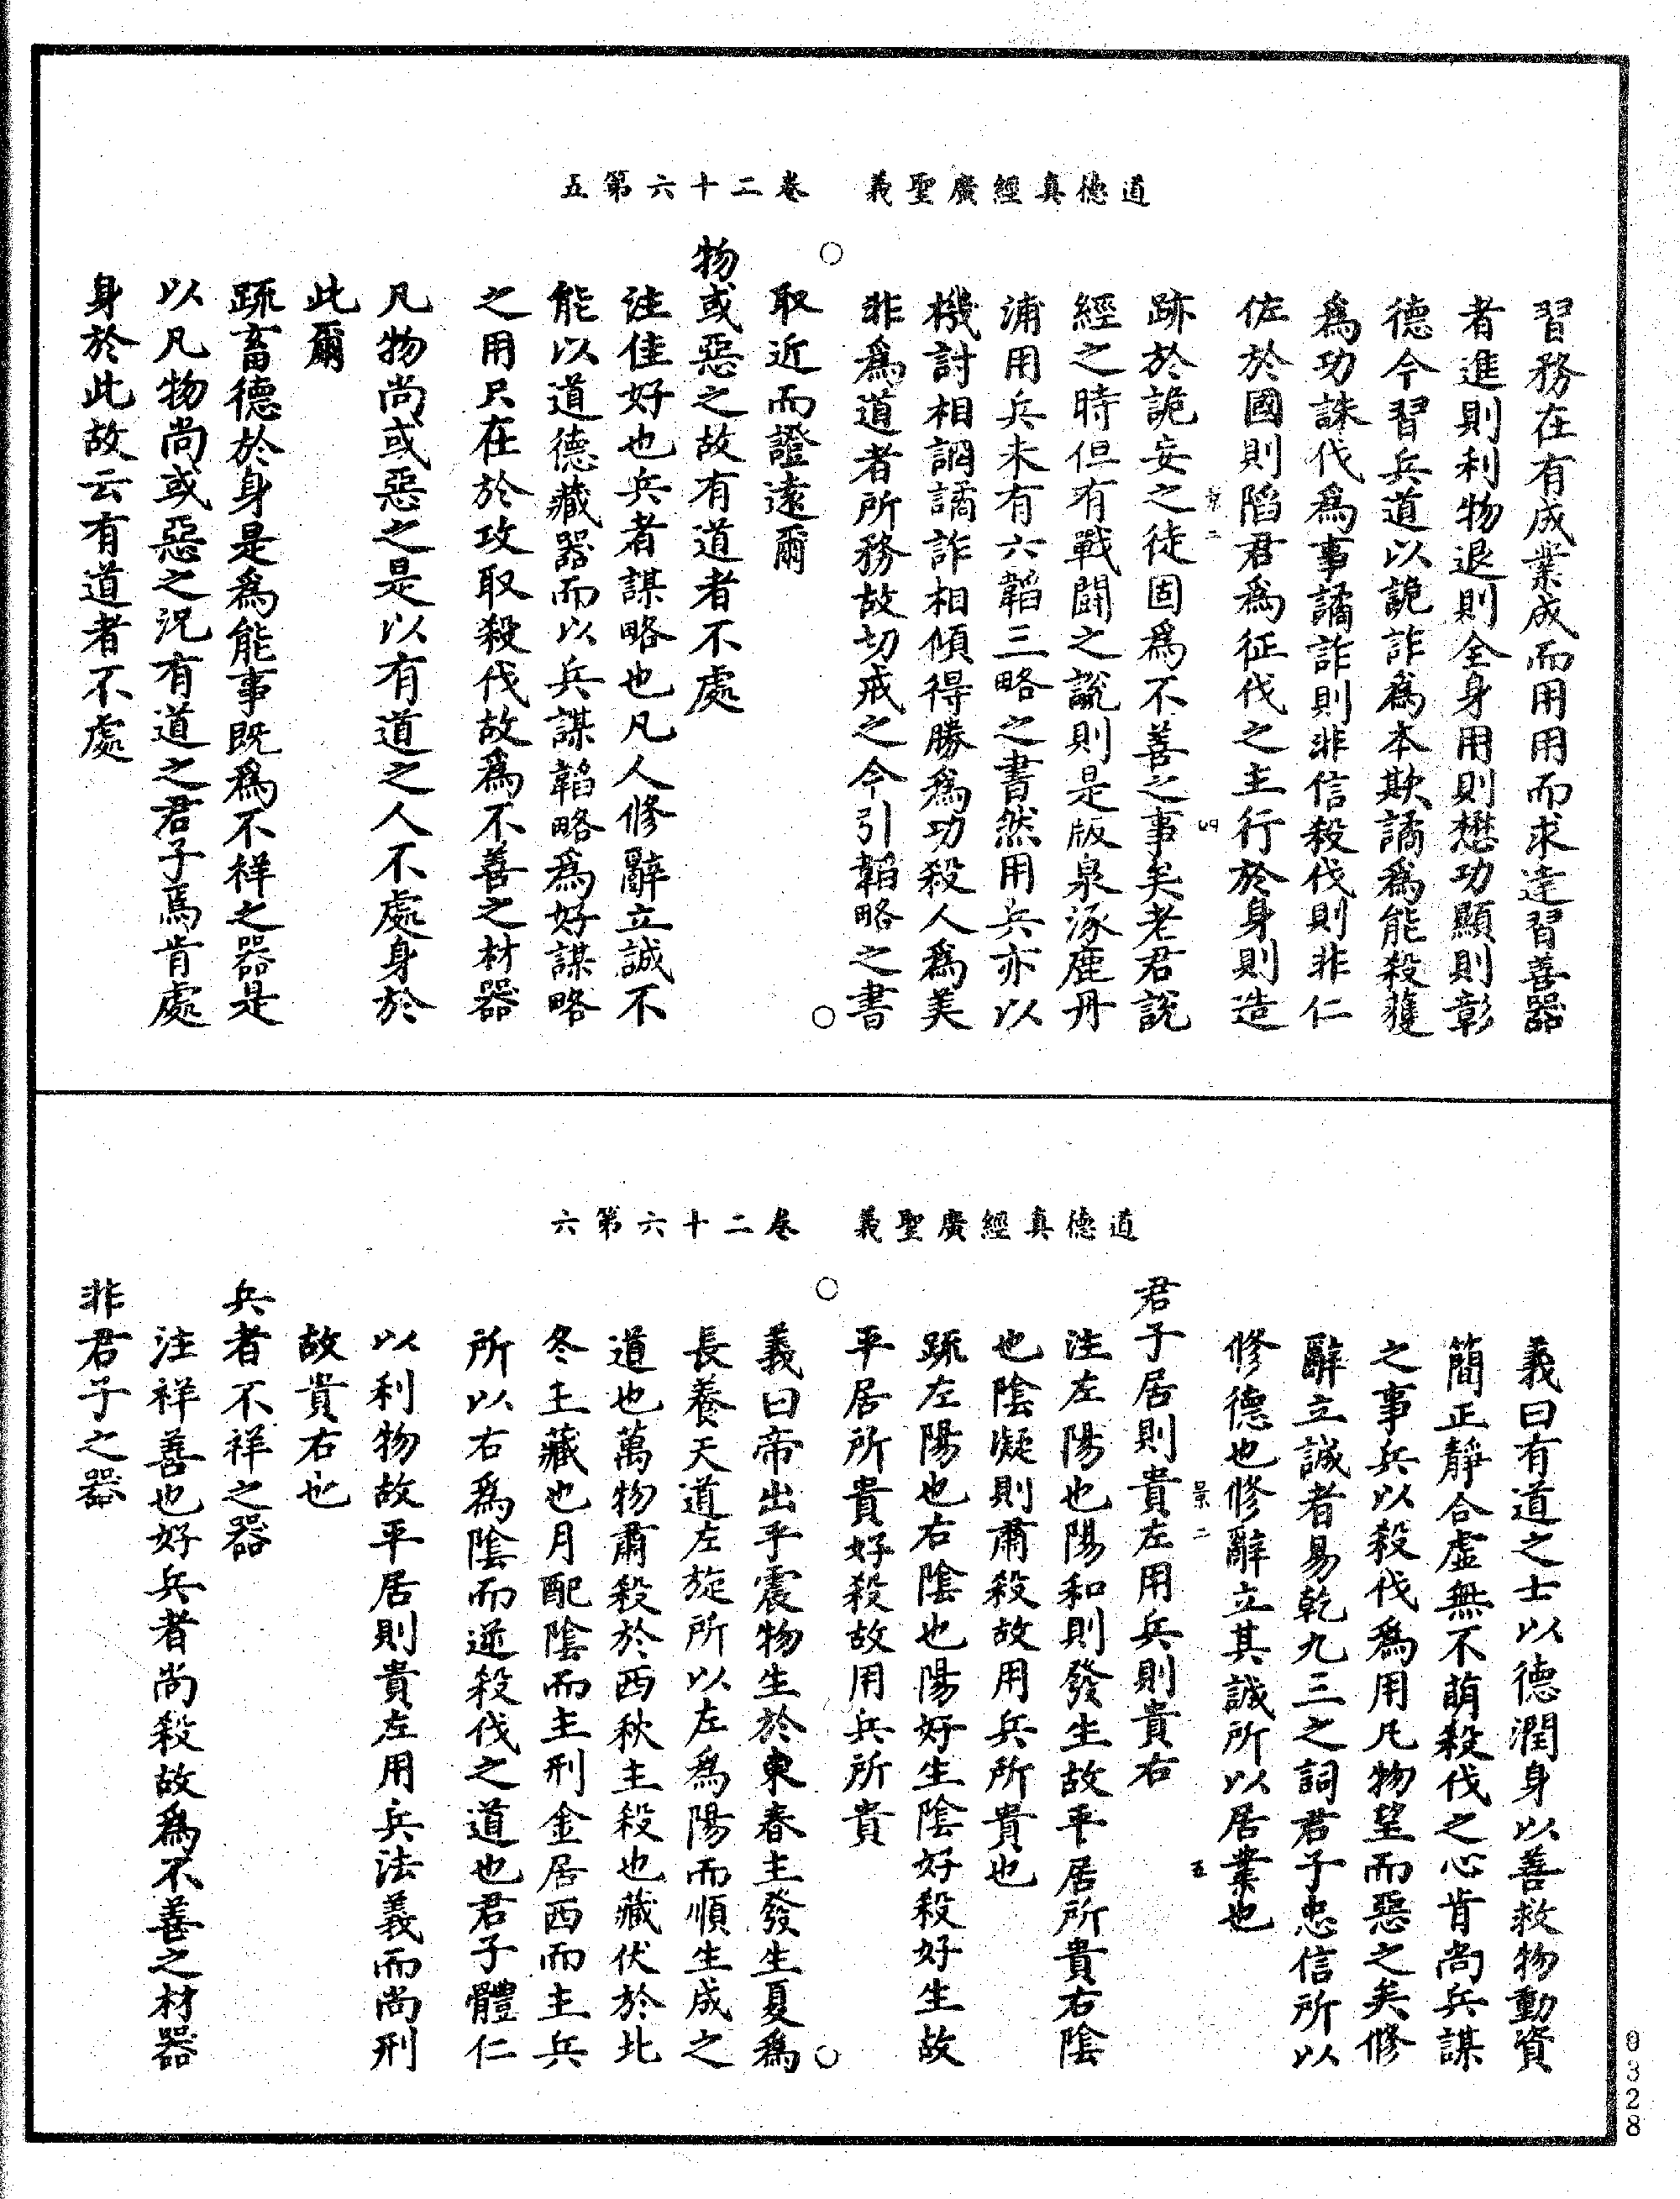 道德真經廣聖義　卷二十六第五
習務在有成業成而用用而求達習善器
者進則利物退則全身用則懋功顯則彰
德今習兵道以詭詐爲本欺譎爲能殺獲
爲功誅伐爲事譎詐則非信殺伐則非仁
佐於國則陷君爲征伐之主行於身則造
景二　四
跡於詭妄之徒固爲不善之事矣老君說
經之時但有戰鬪之說則是版泉涿鹿丹
浦用兵未有六韜三略之書然用兵亦以
機討相調譎詐相傾得勝爲功殺人爲美
非爲道者所務故切戒之今引韜略之書
取近而證遠爾
物或惡之故有道者不處
註佳好也兵者謀略也凡人修辭立誠不
能以道德藏器而以兵謀韜略爲好謀略
之用只在於攻取殺伐故爲不善之材器
凡物尚或惡之是以有道之人不處身於
此爾
疏畜德於身是爲能事既爲不祥之器是
以凡物尚或惡之況有道之君子焉肯處
身於此故云有道者不處
道德真經廣聖義　卷二十六第六
義曰有道之士以德潤身以善救物動資
簡正靜合虛無不萌殺伐之心肯尚兵謀
之事兵以殺伐爲用凡物望而惡之矣修
辭立誠者易乾九三之詞君子忠信所以
修德也修辭立其誠所以居業也
景二　五
君子居則貴左用兵則貴右
注左陽也陽和則發生故平居所貴右陰
也陰凝則肅殺故用兵所貴也
疏左陽也右陰也陽好生陰好殺好生故
平居所貴好殺故用兵所貴
義曰帝出乎震物生於東春主發生夏爲
長養天道左旋所以左爲陽而順生成之
道也萬物肅殺於西秋主殺也藏伏於北
冬主藏也月配陰而主刑金居西而主兵
所以右爲陰而逆殺伐之道也君子體仁
以利物故平居則貴左用兵法義而尚刑
故貴右也
兵者不祥之器
注祥善也好兵者尚殺故爲不善之材器
非君子之器
0328